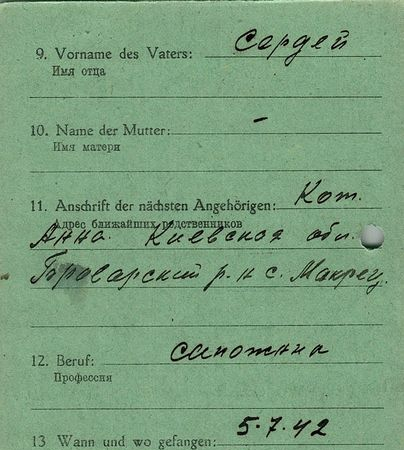 9. Vorname des Vaters: Сергей
Имя отца
10. Name der Mutter: -
Имя матери
11. Anschrift der nächsten Angehörigen: Кот
Адрес ближайших родственников
Анна. Киевская обл.
Броварский р-н с. Макрец
12. Beruf: сапожник
Профессия
5.7.42
13 Wann und wo gefangen: